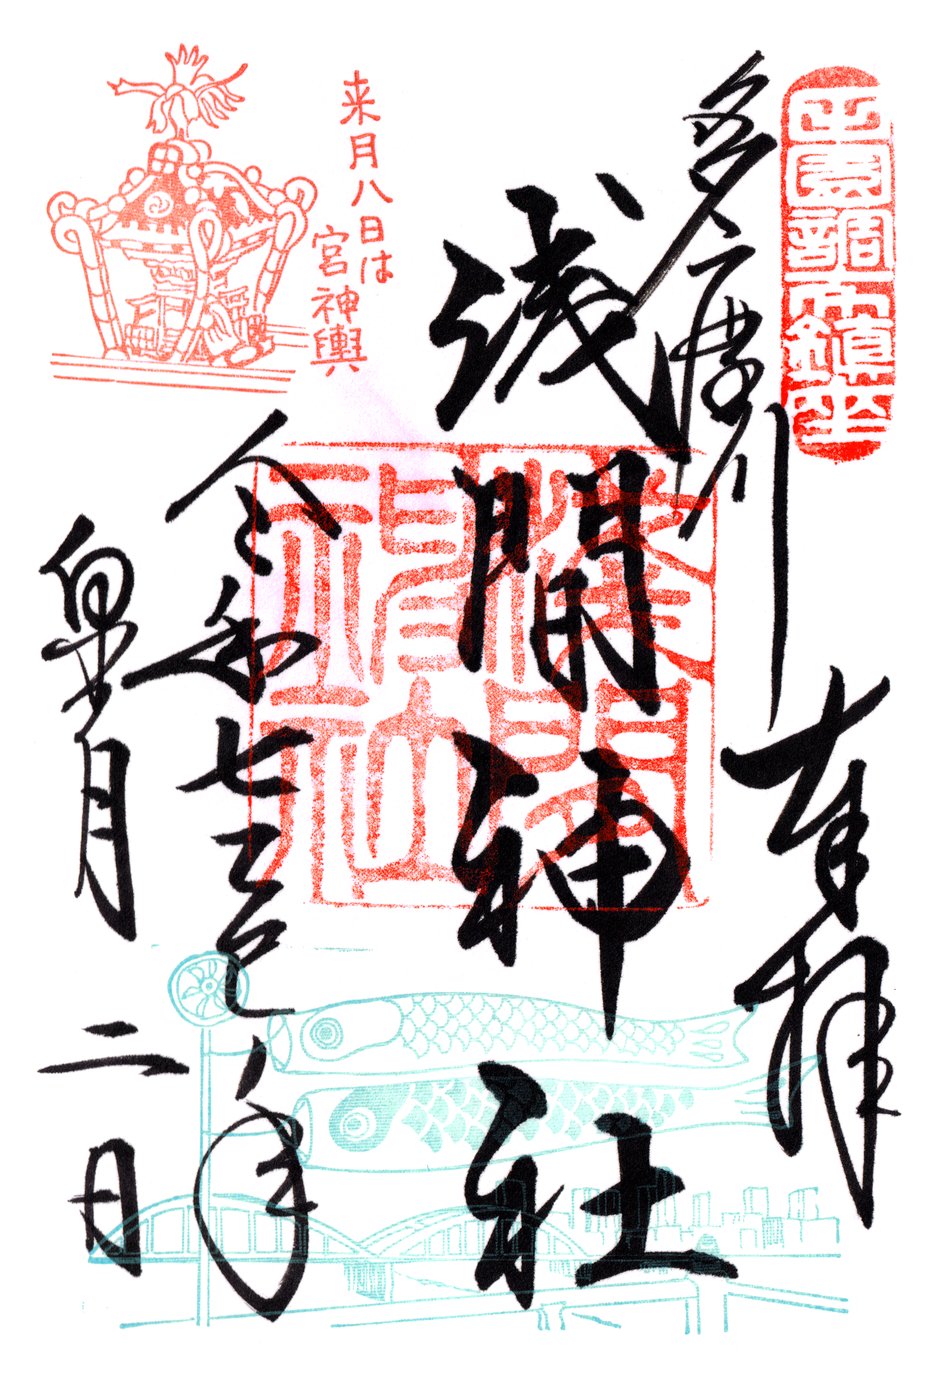 田園調布鎮座
多摩川
奉拝
浅間神社
淺間
神社
来月八日は
宮神輿
令和七乙巳年
皐月二日